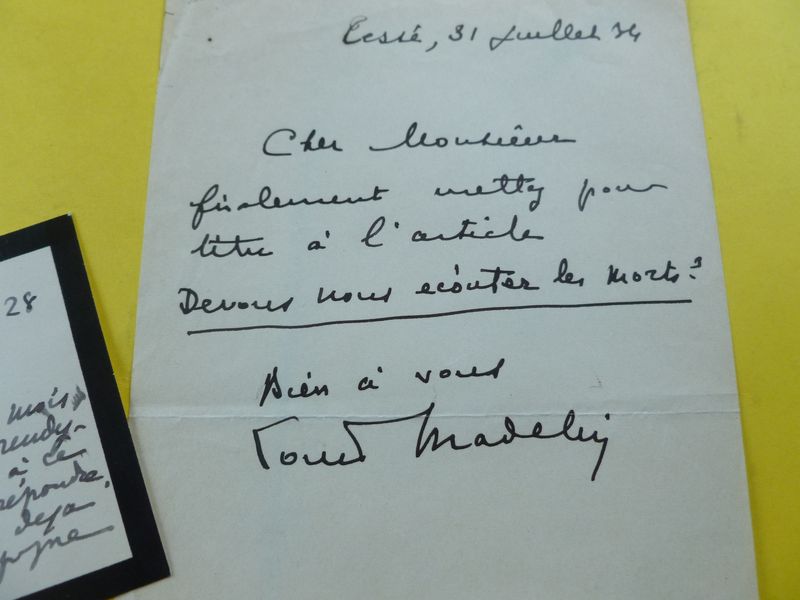 31 juillet 34
Cher Monsieur
finalement mettez pour
titre à l'article
Devons nous écouter les morts ?
Bien à vous
Louis Madelin
28
mais
rendez-
à ce
répondre.
deja